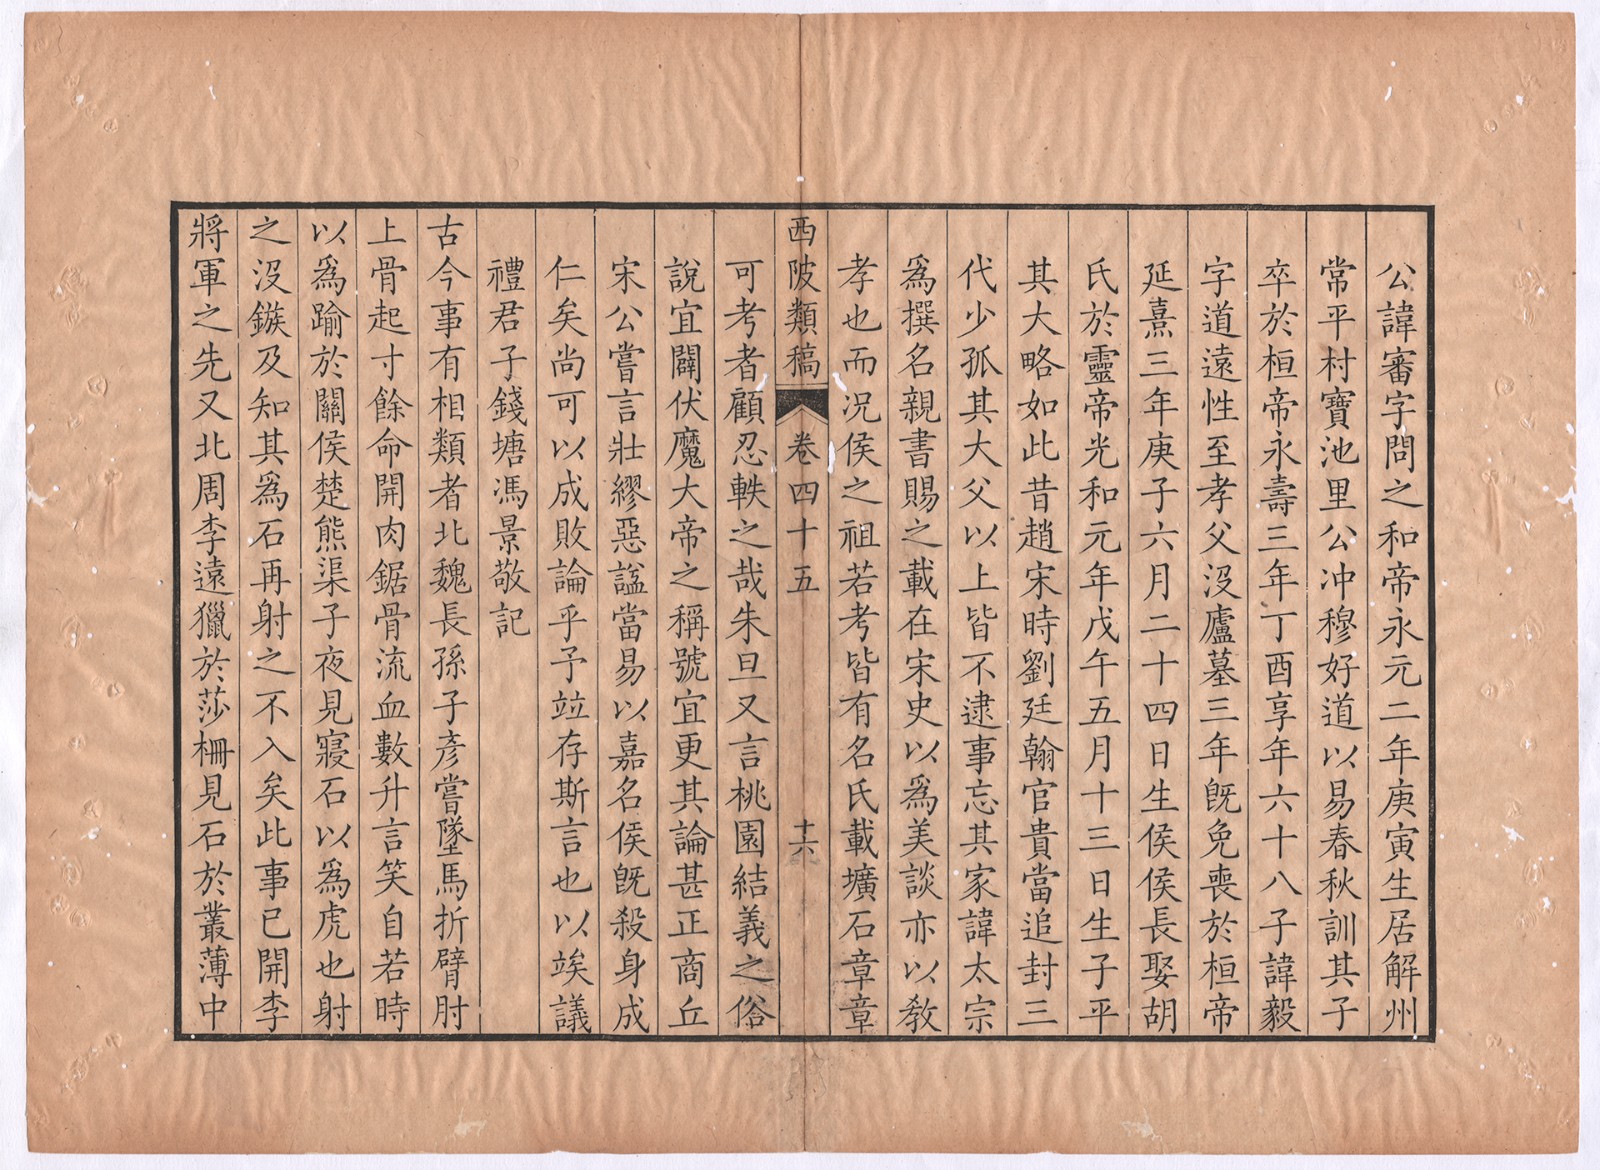 公諱審字問之和帝永元二年庚寅生居解州
常平村寶池里公冲穆好道以易春秋訓其子
卒於桓帝永壽三年丁酉享年六十八子諱毅
字道遠性至孝父沒廬墓三年旣免喪於桓帝
延熹三年庚子六月二十四日生侯侯長娶胡
氏於靈帝光和元年戊午五月十三日生子平
其大略如此昔趙宋時劉廷翰官貴當追封三
代少孤其大父以上皆不逮事忘其家諱太宗
爲撰名親書賜之載在宋史以爲美談亦以敎
孝也而况侯之祖若考皆有名氏載壙石章章
西陂類稿 卷四十五 十六
可考者顧忍軼之哉朱旦又言桃園結義之俗
說宜闢伏魔大帝之稱號宜更其論甚正商丘
宋公嘗言壯繆惡諡當易以嘉名侯旣殺身成
仁矣尚可以成敗論乎予竝存斯言也以竢議
禮君子錢塘馮景敬記
古今事有相類者北魏長孫子彥嘗墜馬折臂肘
上骨起寸餘命開肉鋸骨流血數升言笑自若時
以爲踰於關侯楚熊渠子夜見寢石以爲虎也射
之沒鏃及知其爲石再射之不入矣此事已開李
將軍之先又北周李遠獵於莎柵見石於叢薄中